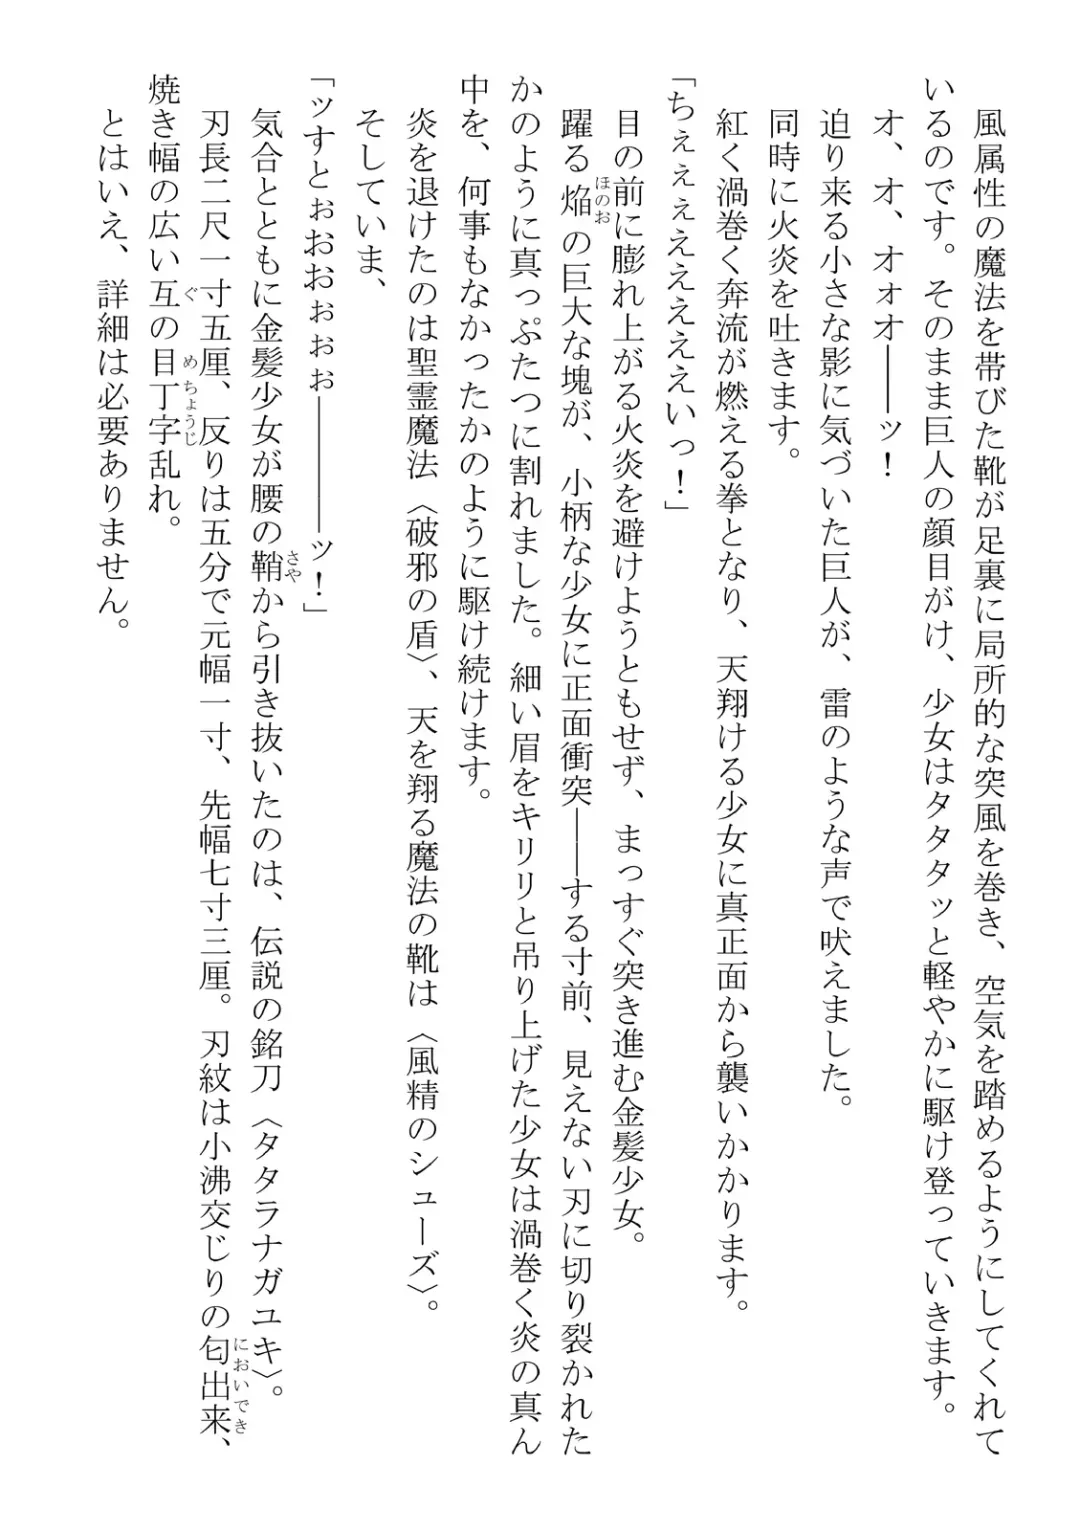 風属性の魔法を帯びた靴が足裏に局所的な突風を巻き、空気を踏めるようにしてくれて
いるのです。そのまま巨人の顔目がけ、少女はタタタッと軽やかに駆け登っていきます。
オ、オ、オォオ――ッ！
迫り来る小さな影に気づいた巨人が、雷のような声で吠えました。
同時に火炎を吐きます。
紅く渦巻く奔流が燃える拳となり、天翔ける少女に真正面から襲いかかります。
「ちぇぇぇえええええいっ！」
目の前に膨れ上がる火炎を避けようともせず、まっすぐ突き進む金髪少女。
躍る焔の巨大な塊が、小柄な少女に正面衝突――する寸前、見えない刃に切り裂かれた
ほのお
かのように真っぷたつに割れました。細い眉をキリリと吊り上げた少女は渦巻く炎の真ん
中を、何事もなかったかのように駆け続けます。
炎を退けたのは聖霊魔法〈破邪の盾〉、天を翔る魔法の靴は〈風精のシューズ〉。
そしていま、
「ッすとぉおおぉぉぉ――――ッ！」
気合とともに金髪少女が腰の鞘から引き抜いたのは、伝説の銘刀〈タタラナガユキ〉。
さや
刃長二尺一寸五厘、反りは五分で元幅一寸、先幅七寸三厘。刃紋は小沸交じりの匂出来、
においでき
焼き幅の広い互の目丁字乱れ。
ぐ　めちょうじ
とはいえ、詳細は必要ありません。